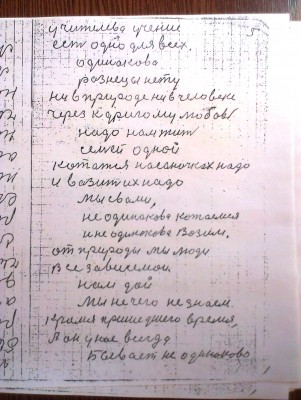 учителва учение
5
ест одно для всех.
одинакова
разнецы нету
ни в природе ни в человеке
через к другому любовь
надо нам жит
семъей одной
кататся на саночках надо
и возит их надо
мы с вами,
не одинакова катаемся
и не одинакова возим.
от природы мы люди
все зависемои.
нам дай
мы нечего не знаем.
время пришедшего время,
А он у нас всегда
бывает не одинаково,